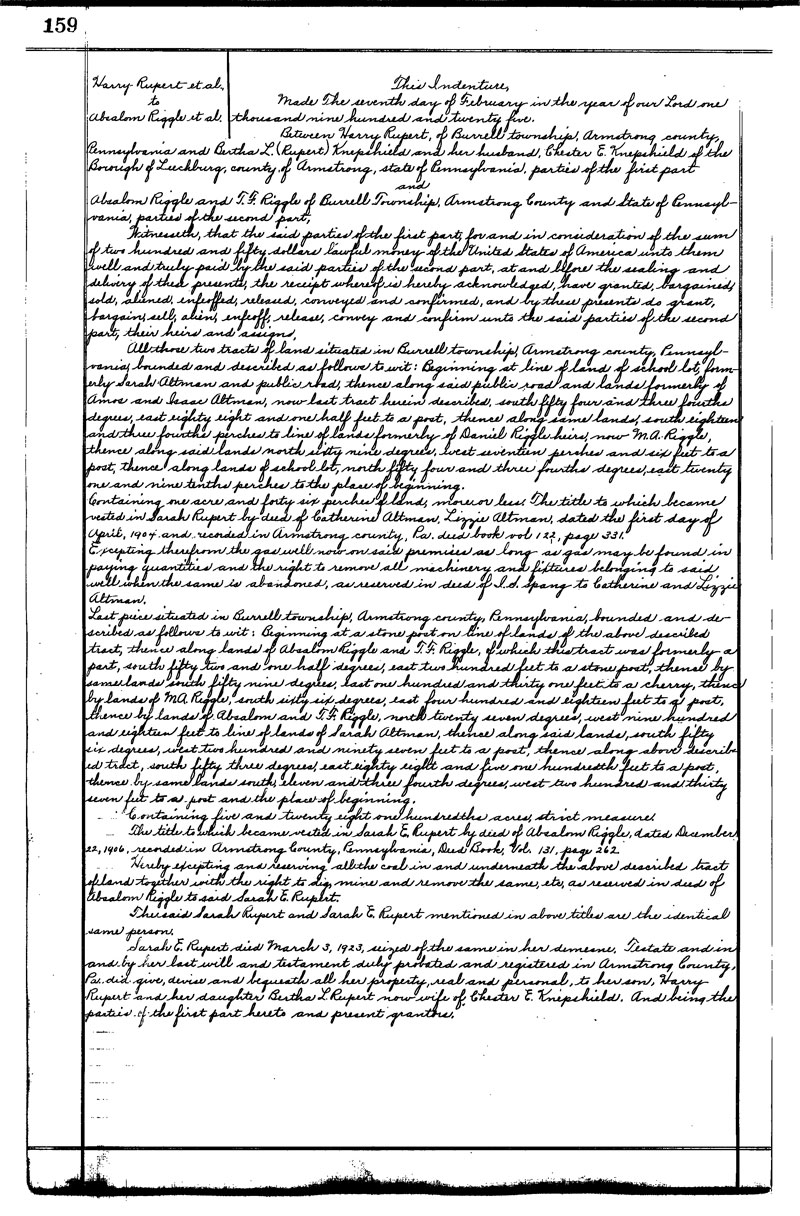 159
Harry Rupert et al.
to
Absalom Riggle et al.
This Indenture,
Made The seventh day of February in the year of our Lord one
thousand nine hundred and twenty five.
Between Harry Rupert, of Burrell township, Armstrong county,
Pennsylvania and Bertha L. (Rupert) Knepshield and her husband, Chester E. Knepshield of the
Borough of Leechburg, county of Armstrong, state of Pennsylvania, parties of the first part
and
Absalom Riggle and T.F. Riggle of Burrell Township, Armstrong County and State of Pennsyl-
vania, parties of the second part,
Witnesseth, that the said parties of the first part, for and in consideration of the sum
of two hundred and fifty dollars lawful money of the United States of America unto them
well and truly paid by the said parties of the second part, at and before the sealing and
delivery of these presents, the receipt whereof is hereby acknowledged, have granted, bargained,
sold, aliened, enfeoffed, released, conveyed and confirmed, and by these presents do grant,
bargain, sell, alien, enfeoff, release, convey and confirm unto the said parties of the second
part, their heirs and assigns,
All those two tracts of land situated in Burrell township, Armstrong county, Pennsyl-
vania, bounded and described as follows to wit: Beginning at line of land of school lot, form-
erly Sarah Altman and public road, thence along said public road and lands formerly of
Amos and Isaac Altman, now last tract herein described, south fifty four and three fourths
degrees, east eighty eight and one half feet to a post, thence along same lands, south eighteen
and three fourths perches to line of lands formerly of Daniel Riggle heirs, now M.A. Riggle,
thence along said lands north sixty nine degrees, west seventeen perches and six feet to a
post, thence along lands of school lot, north fifty four and three fourths degrees, east twenty
one and nine tenths perches to the place of beginning.
Containing one acre and forty six perches of land, more or less. The title to which became
vested in Sarah Rupert by deed of Catherine Altman, Lizzie Altman, dated the first day of
April, 1904 and recorded in Armstrong county, Pa. deed book vol 122, page 331.
Excepting therefrom the gas well now on said premises as long as gas may be found in
paying quantities and the right to remove all machinery and fixtures belonging to said
well when the same is abandoned, as reserved in deed of Spang to Catherine and Lizzie
Altman.
Last piece situated in Burrell township, Armstrong county, Pennsylvania, bounded and de-
scribed as follows to wit: Beginning at a stone post on line of lands of the above described
tract, thence along lands of Absalom Riggle and T.F. Riggle, of which this tract was formerly a
part, south fifty two and one half degrees, east two hundred feet to a stone post, thense by
same lands south fifty nine degrees, east one hundred and thirty one feet to a cherry, thence
by lands of M.A. Riggle, south sixty six degrees, east four hundred and eighteen feet to a post,
thence by lands of Absalom and T.F. Riggle, north twenty seven degrees, west nine hundred
and eighteen feet to line of lands of Sarah Altman, thence along said lands, south fifty
six degrees, west two hundred and ninety seven feet to a post, thence along above describ-
ed tract, south fifty three degrees, east eighty eight and five one hundredth feet to a post,
thence by same lands south, eleven and three fourth degrees, west two hundred and thirty
seven feet to a post and the place of beginning.
Containing five and twenty eight one hundredths acres, strict measure.
The title to which became vested in Sarah E. Rupert by deed of Absalom Riggle, dated December
22, 1906, recorded in Armstrong County, Pennsylvania, Deed Book, Vol. 131, page 262
Hereby excepting and reserving all the coal in and underneath the above described tract
of land together with the right to dig, mine and remove the same, etc, as reserved in deed of
Absalom Riggle to said Sarah E. Rupert.
The said Sarah Rupert and Sarah E. Rupert mentioned in above titles are the identical
same person.
Sarah E. Rupert died March 3, 1923, seized of the same in her demesne. Testate and in
and by her last will and testament duly probated and registered in Armstrong County,
Pa. did give, devise and bequeath all her property, real and personal, to her son, Harry
Rupert and her daughter Bertha L Rupert now wife of Chester E. Knepshield. And being the
parties of the first part hereto and present grantors.